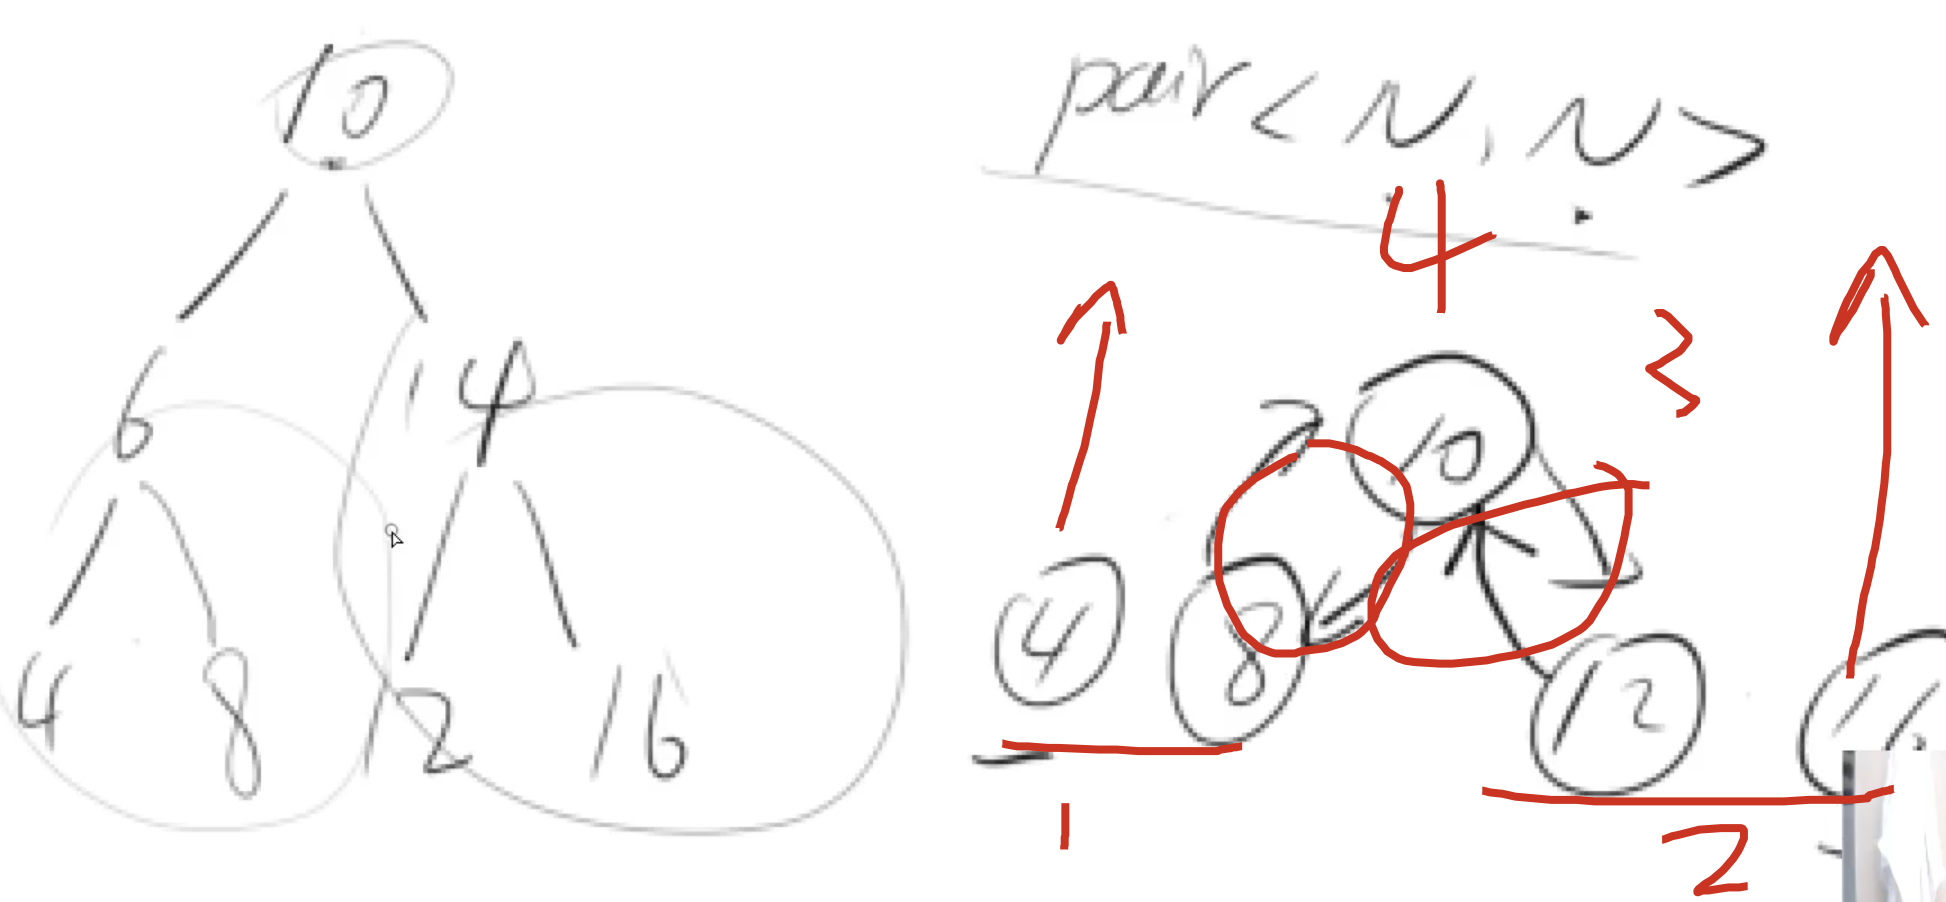 10
6 14
4 8 12 16
pair<N, N>
4
3
10
4 8 12
1 2